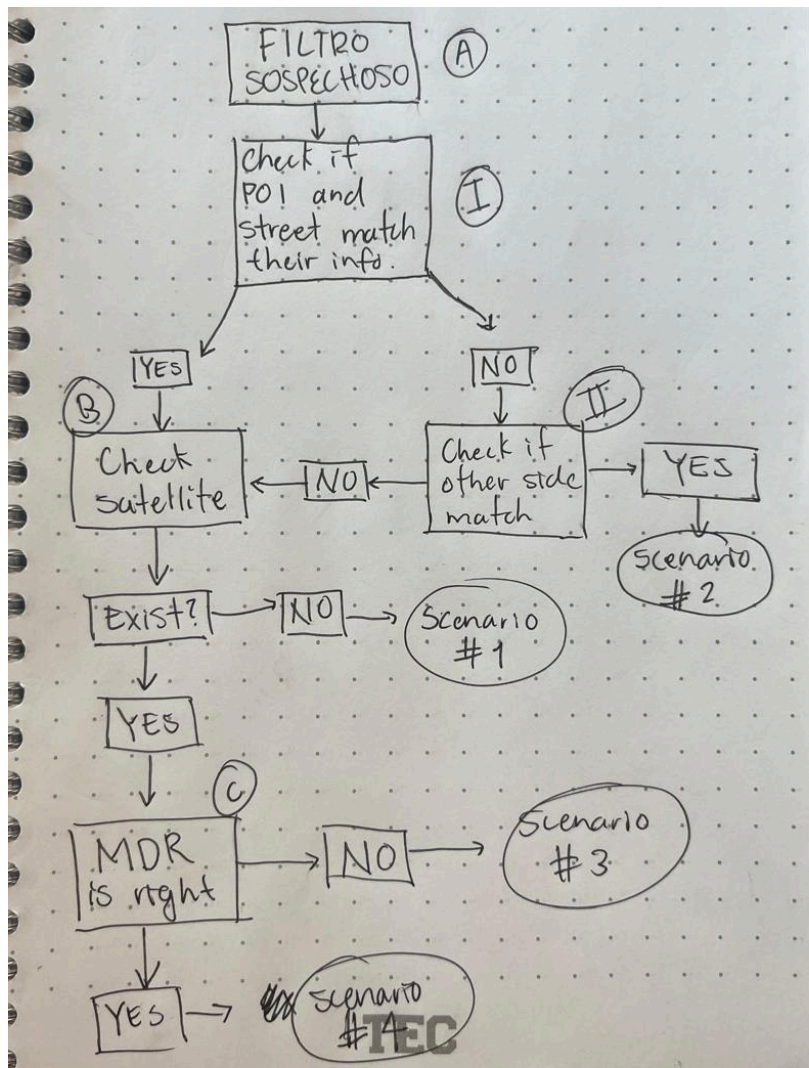 FILTRO
SOSPECHOSO
A
Check if
POI and
street match
their info.
I
YES
NO
B
II
Check
satellite
NO
Check if
other side
match
YES
Scenario
#2
Exist?
NO
Scenario
#1
YES
C
MDR
is right
NO
Scenario
#3
YES
Scenario
#4
TEC